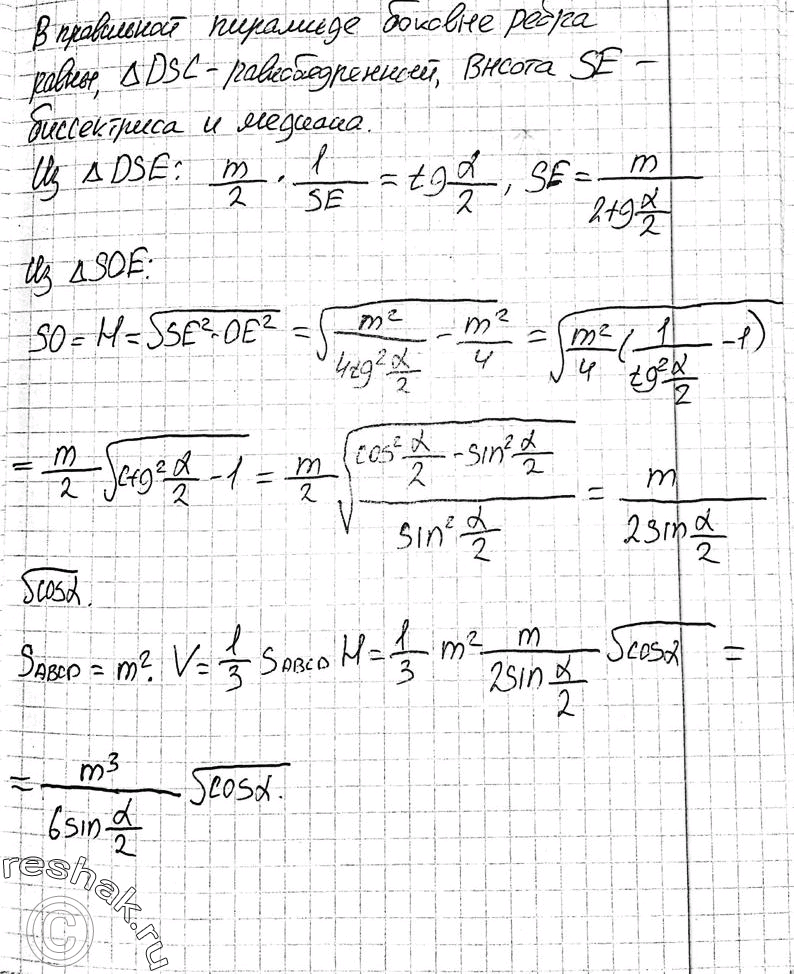 В правильной пирамиде боковые ребра
равны, △DSC - равнобедренный, высота SE -
биссектриса и медиана.
Из △DSE: m/2 · 1/SE = tg α/2, SE = m/(2tg α/2)
Из △SOE:
SO = H = √(SE² - OE²) = √(m²/(4tg² α/2) - m²/4) = √(m²/4 (1/(tg² α/2) - 1))
= m/2 √(ctg² α/2 - 1) = m/2 √((cos² α/2 - sin² α/2)/(sin² α/2)) = m/(2sin α/2)
√cosα.
S ABCD = m². V = 1/3 S ABCD H = 1/3 m² m/(2sin α/2) √cosα =
= m³/(6sin α/2) √cosα.
reshak.ru
©